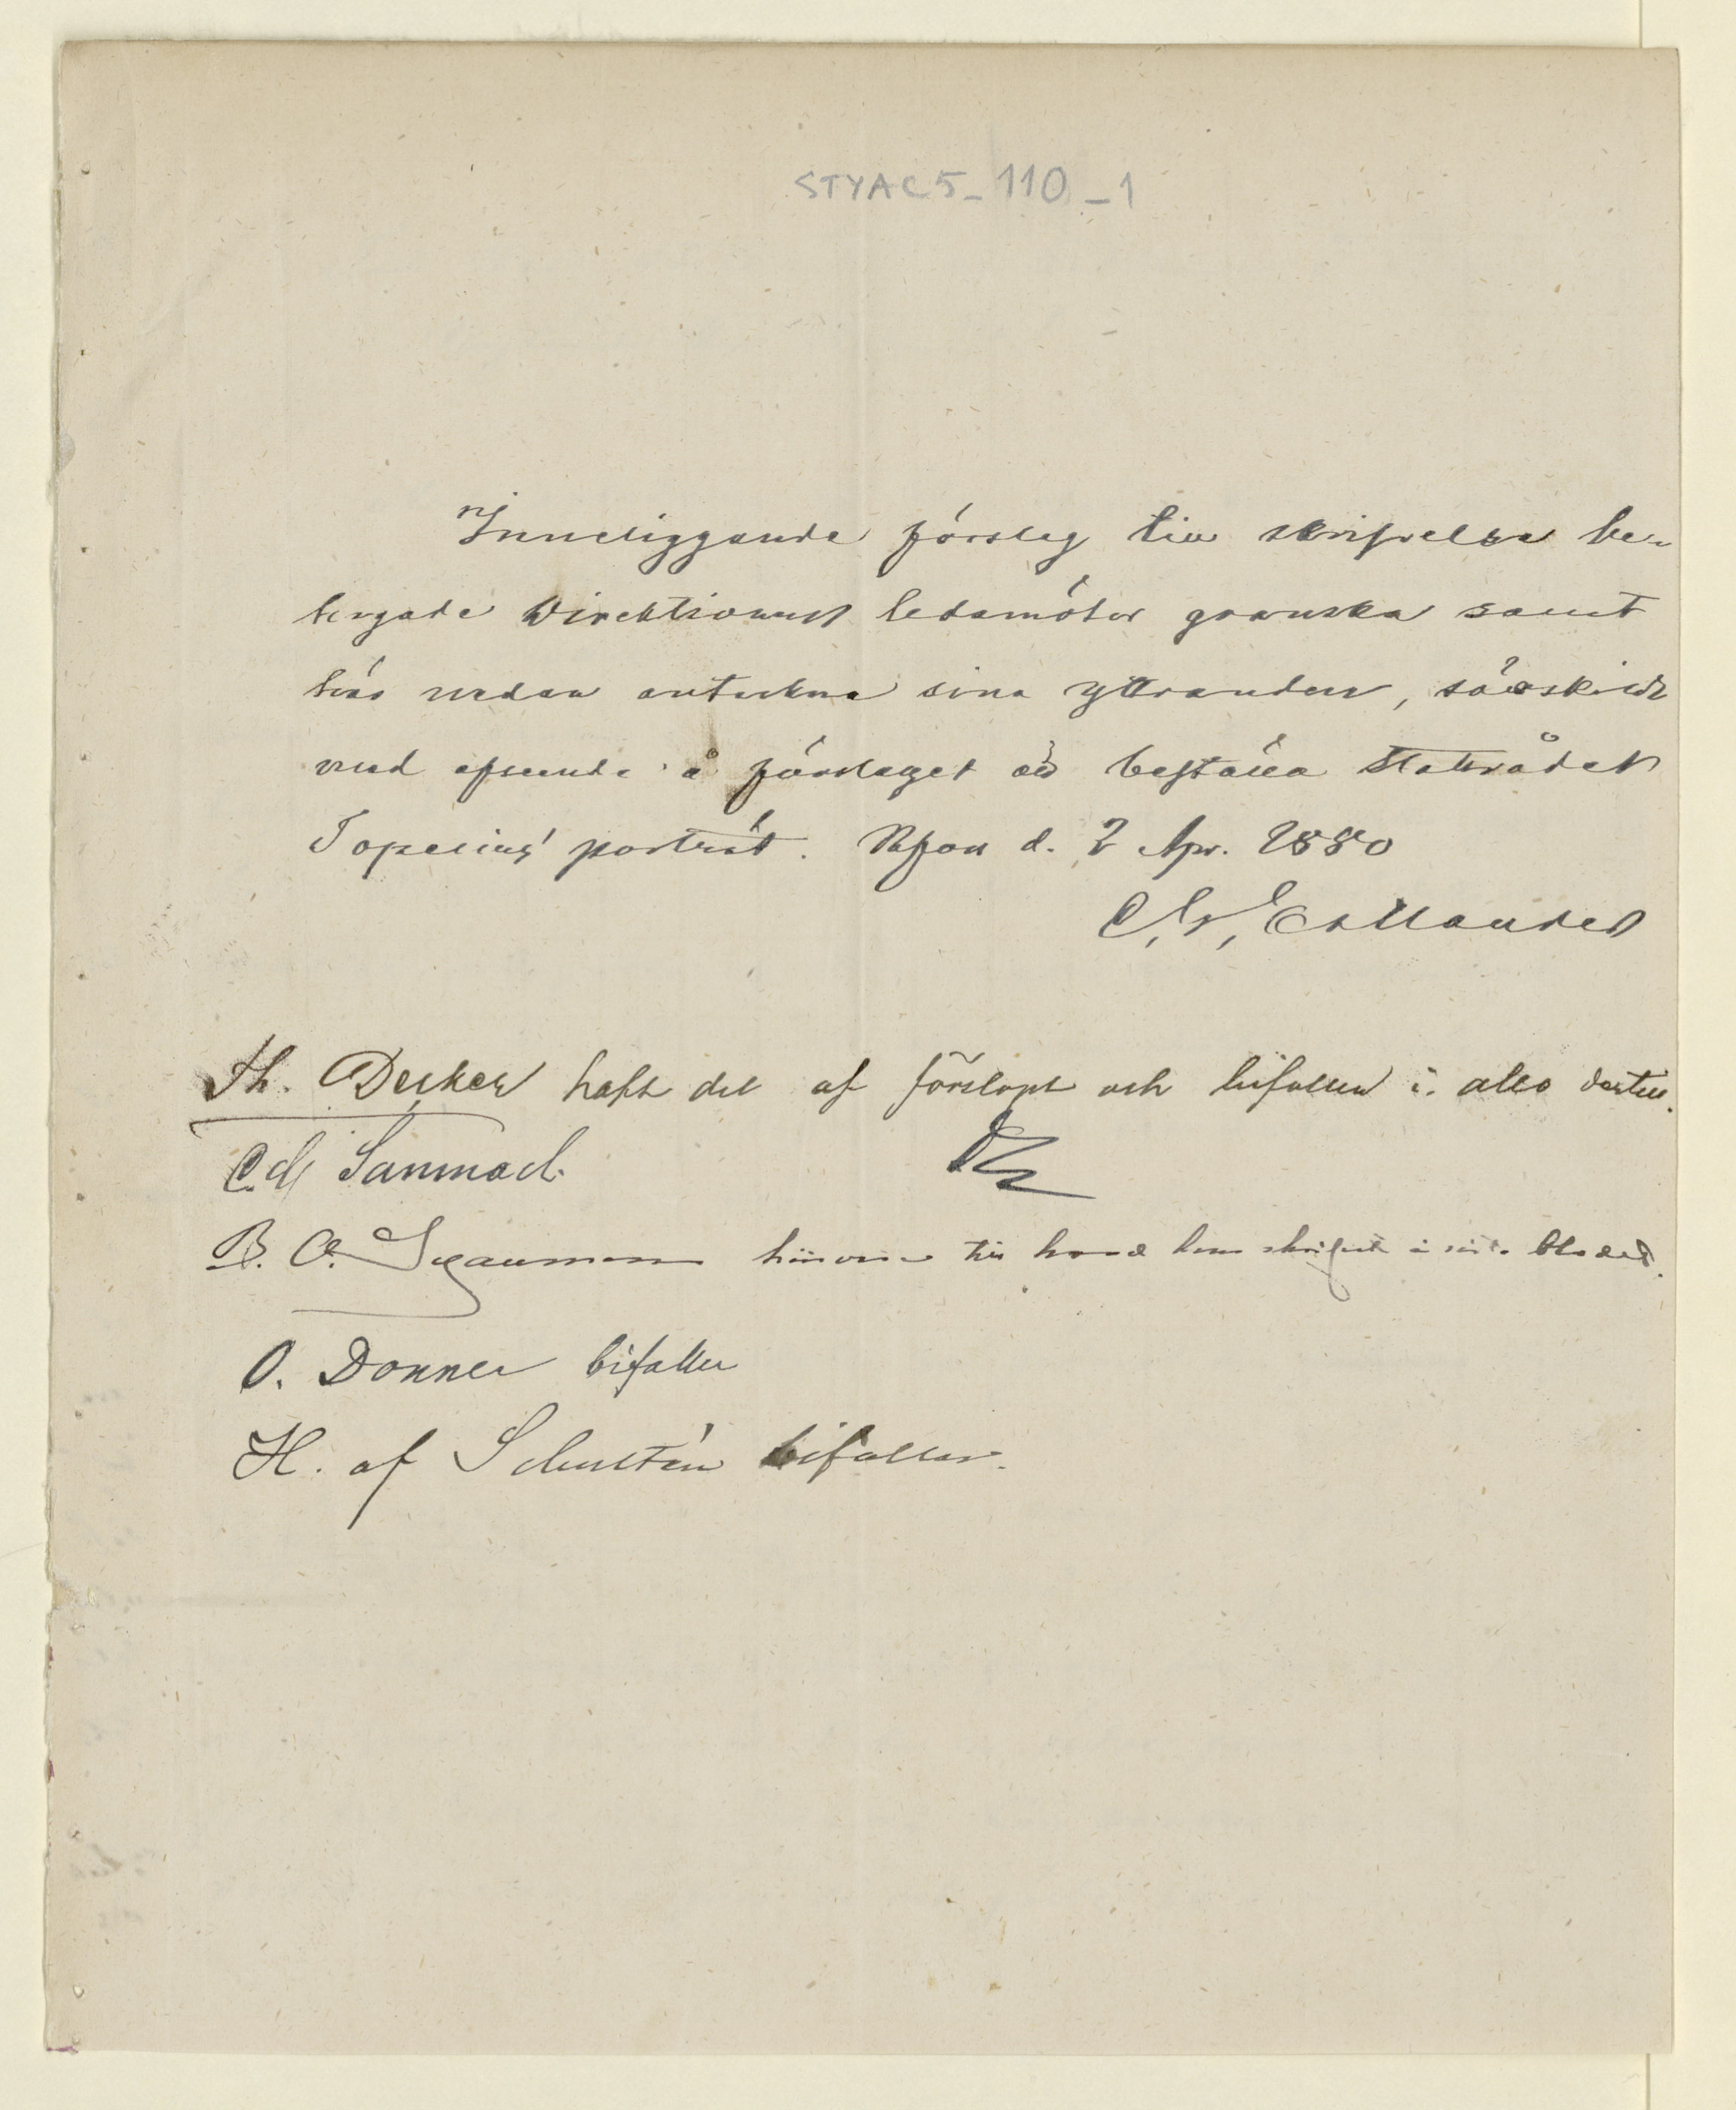 STYAC5_110_1
Inneliggande förslag till skrifvelse be-
hagade Direktionens ledamöter granska samt
här nedan anteckna sina yttranden, särskildt
med afseende å förslaget att beställa Statsrådet
Topelius' porträtt. Hfors d. 2 Apr. 1880
C. G. Estlander
Th. Decker haft del af förslaget och bifaller i allo dertill.
Sanmark
B. O. Schauman hänvisar till hvad han skrifvit å bladet.
O. Donner bifaller
H. af Schultén bifaller.